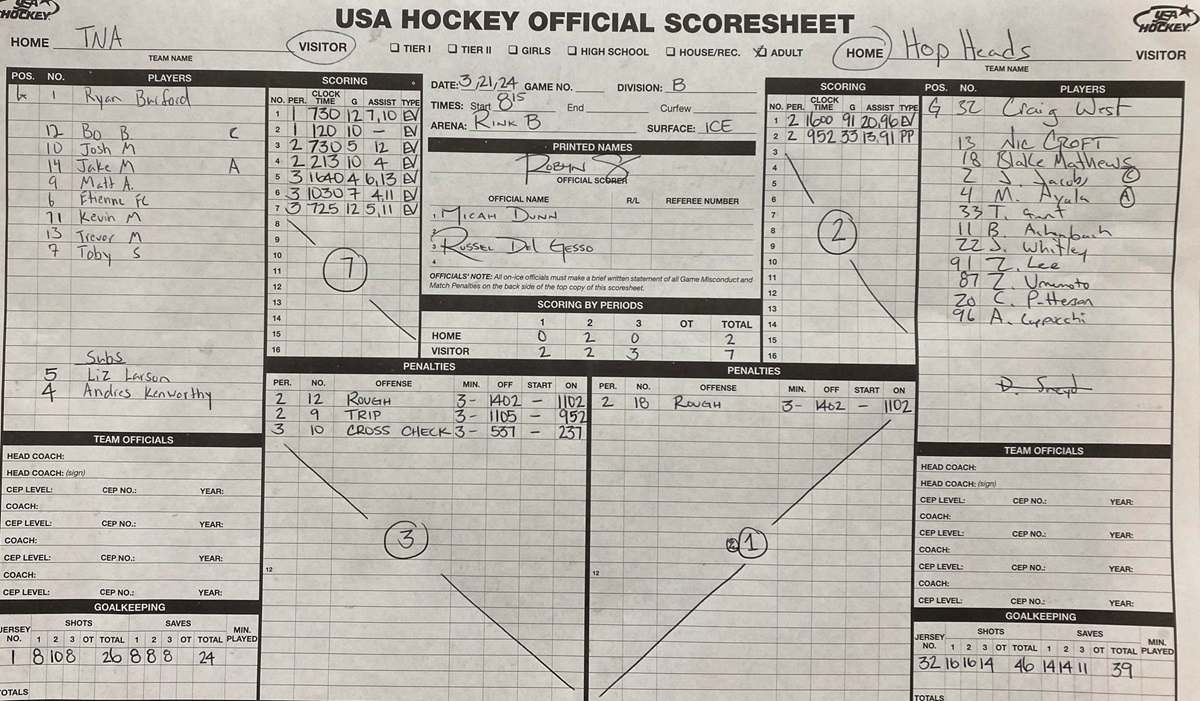 USA HOCKEY OFFICIAL SCORESHEET
USA HOCKEY
HOME TNA VISITOR
TEAM NAME
TIER I TIER II GIRLS HIGH SCHOOL HOUSE/REC. ADULT
HOME Hop Heads VISITOR
TEAM NAME
POS. NO. PLAYERS
1 Ryan Burford
12 Bo B C
10 Josh M
14 Jake M A
9 Matt A.
6 Etienne FC
71 Kevin M
13 Trevor M
7 Toby S
Subs
5 Liz Larson
4 Andres Kenworthy
SCORING
NO. PER. CLOCK TIME G ASSIST TYPE
1 1 730 12 7,10 EV
2 1 120 10 — EV
3 2 730 5 12 EV
4 2 213 10 4 EV
5 3 1640 4 6,13 EV
6 3 1030 7 4,11 EV
7 3 725 12 5,11 EV
8
9
10
11
12
13
14
15
16
7
DATE: 3/21/24 GAME NO. DIVISION: B
TIMES: Start 8 15 End Curfew
ARENA: RINK B SURFACE: ICE
PRINTED NAMES
ROBYN
OFFICIAL SCORER
OFFICIAL NAME R/L REFEREE NUMBER
1 MICAH DUNN
2
3 RUSSEL DEL GESSO
4
OFFICIALS' NOTE: All on-ice officials must make a brief written statement of all Game Misconduct and
Match Penalties on the back side of the top copy of this scoresheet.
SCORING BY PERIODS
1 2 3 OT TOTAL
HOME 0 2 0 2
VISITOR 2 2 3 7
SCORING
NO. PER. CLOCK TIME G ASSIST TYPE
1 2 1600 91 20,96 EV
2 2 952 33 13,91 PP
3
4
5
6
7
8
9
10
11
12
13
14
15
16
2
POS. NO. PLAYERS
G 32 Craig West
13 NIC CROFT
18 Blake Mathews
2 J. Jacobs C
4 M. Ayala A
33 T.
11 B.
22 J. Whitley
91 Z. Lee
87 Z. Umumoto
20 C. Patterson
96 A.
PENALTIES
PER. NO. OFFENSE MIN. OFF START ON
2 12 ROUGH 3- 1402 — 1102
2 9 TRIP 3- 1105 — 952
3 10 CROSS CHECK 3- 537 — 237
12
3
PENALTIES
PER. NO. OFFENSE MIN. OFF START ON
2 18 ROUGH 3- 1402 — 1102
12
1
TEAM OFFICIALS
HEAD COACH:
HEAD COACH: (sign)
CEP LEVEL: CEP NO.: YEAR:
COACH:
CEP LEVEL: CEP NO.: YEAR:
COACH:
CEP LEVEL: CEP NO.: YEAR:
COACH:
CEP LEVEL: CEP NO.: YEAR:
GOALKEEPING
SHOTS SAVES
JERSEY NO. 1 2 3 OT TOTAL 1 2 3 OT TOTAL MIN. PLAYED
1 8 10 8 26 8 8 8 24
TOTALS
TEAM OFFICIALS
HEAD COACH:
HEAD COACH: (sign)
CEP LEVEL: CEP NO.: YEAR:
COACH:
CEP LEVEL: CEP NO.: YEAR:
COACH:
CEP LEVEL: CEP NO.: YEAR:
COACH:
CEP LEVEL: CEP NO.: YEAR:
GOALKEEPING
SHOTS SAVES
JERSEY NO. 1 2 3 OT TOTAL 1 2 3 OT TOTAL MIN. PLAYED
32 16 16 14 46 14 14 11 39
TOTALS